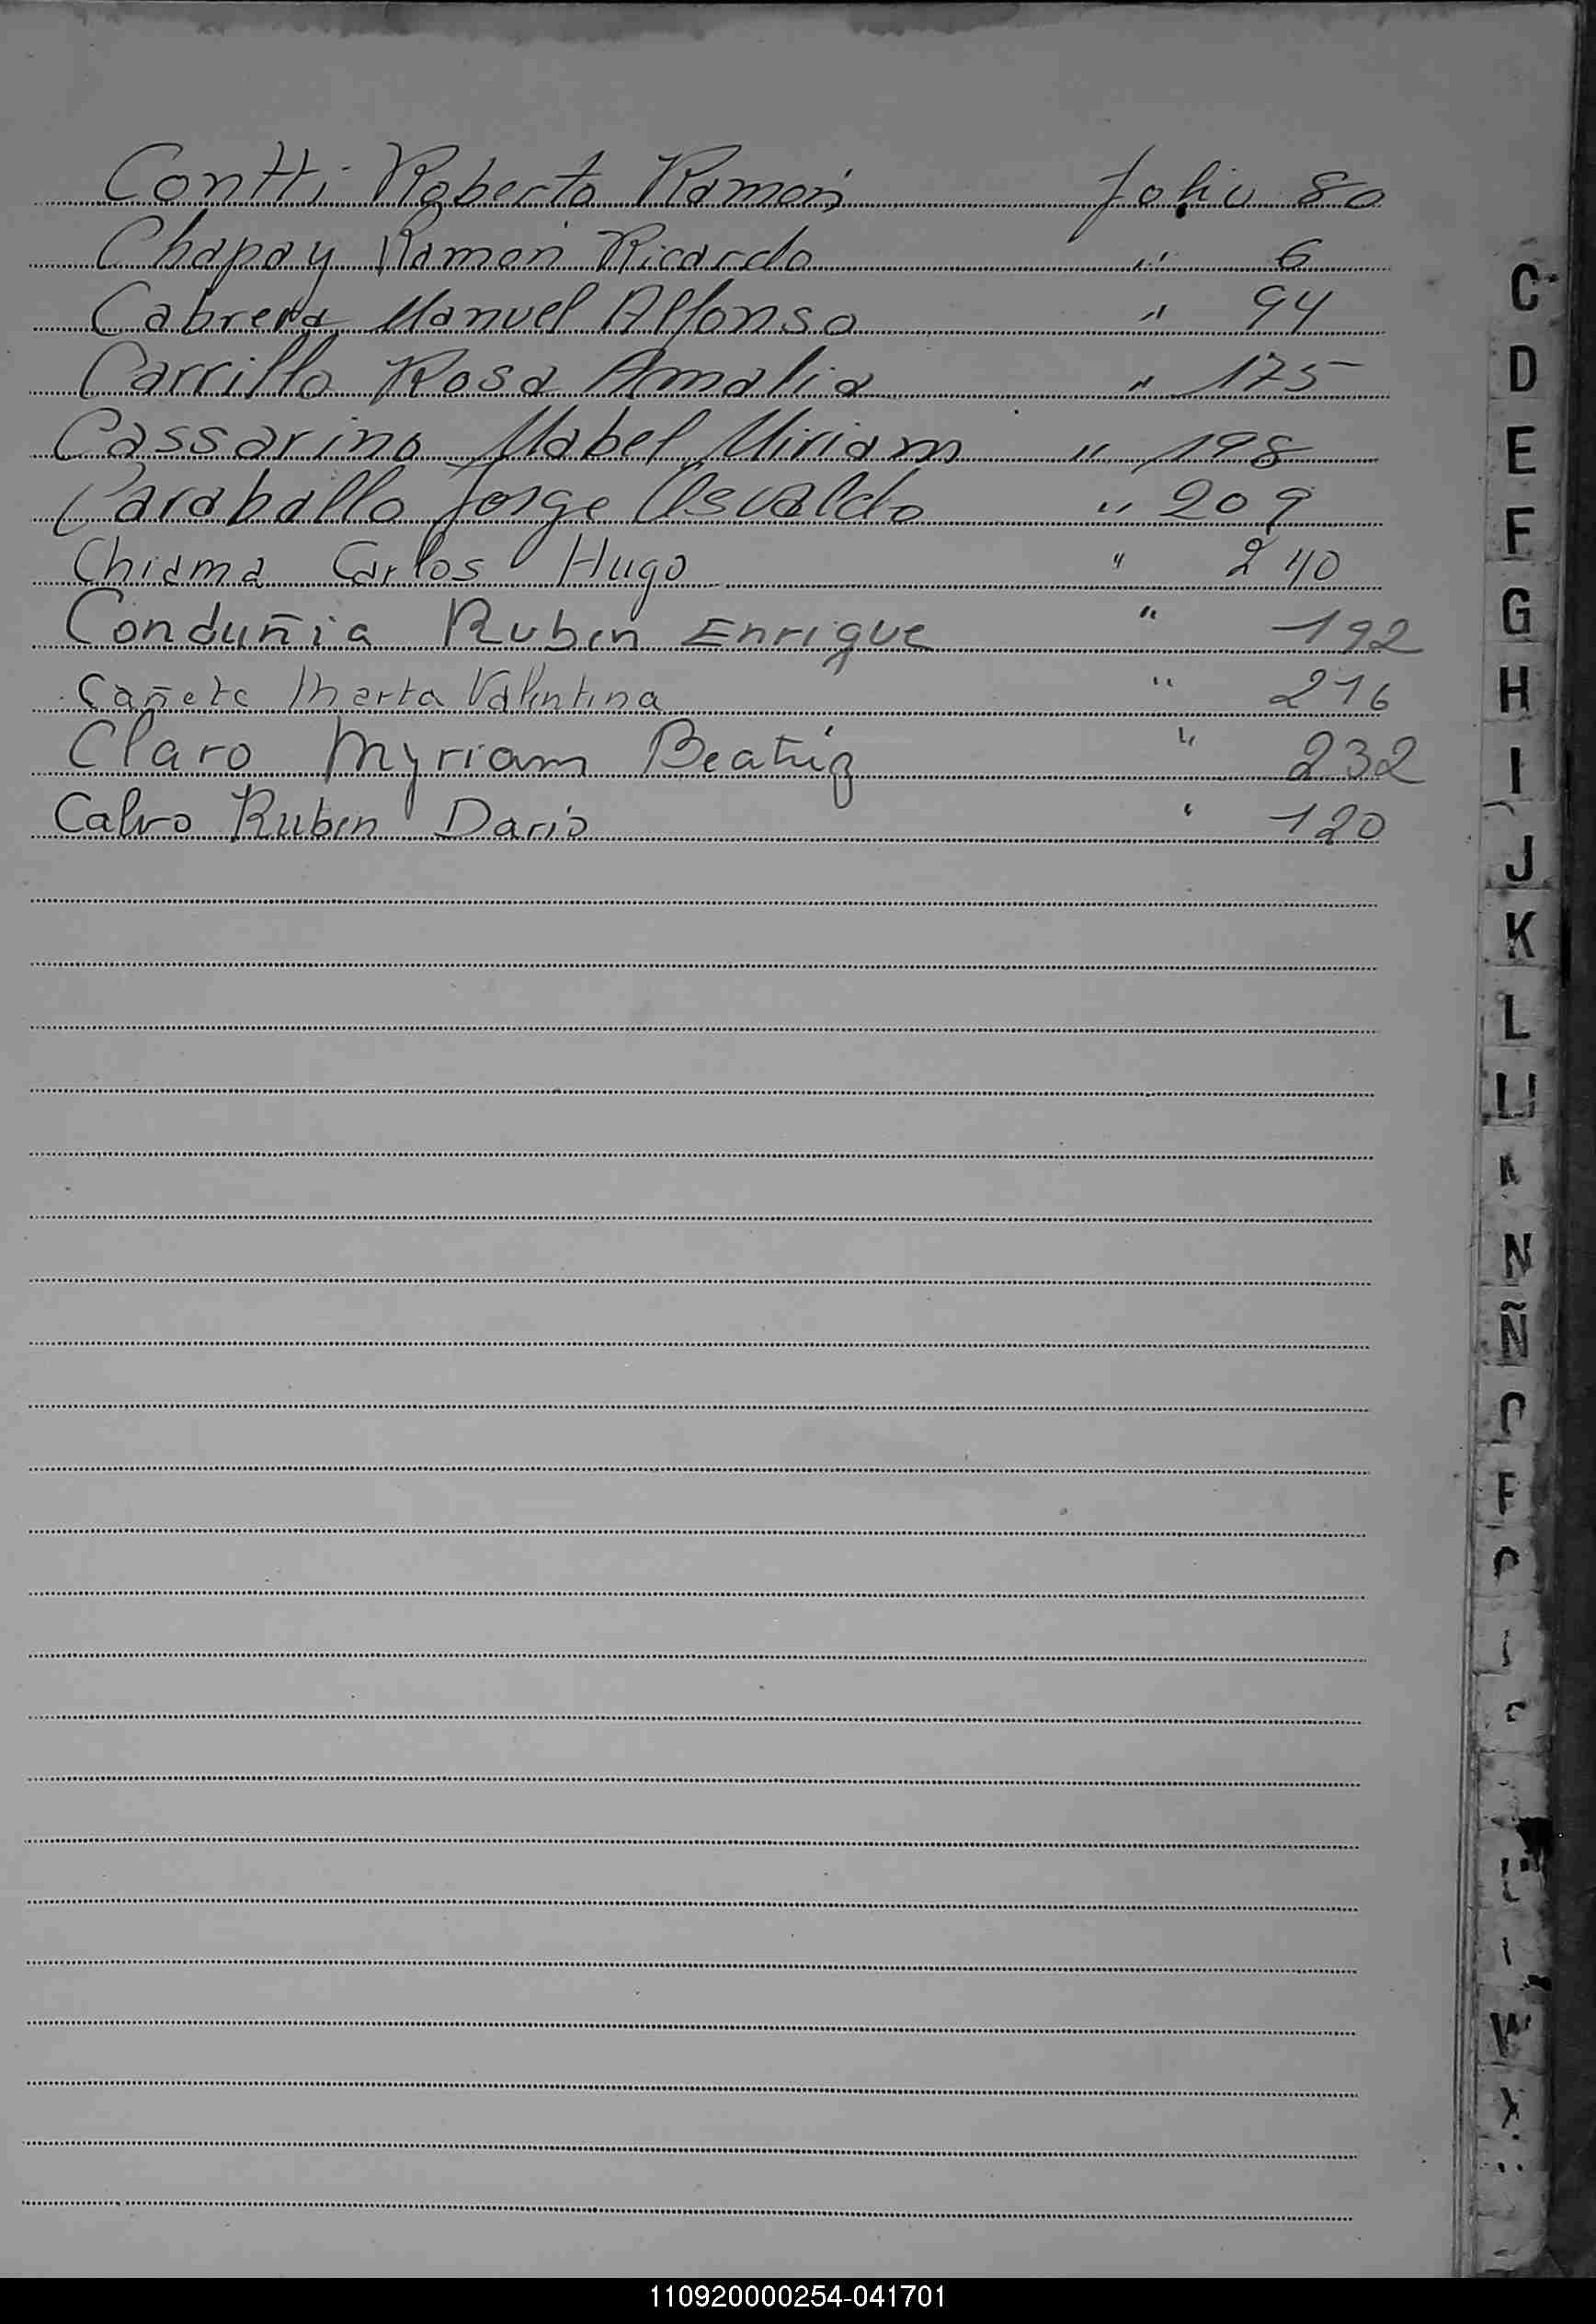 Contti Roberto Ramón folio 80
Chapay Ramon Ricardo " 6
Cabrera Manuel Alfonso " 94
Carrillo Rosa Amalia " 175
Cassarino Mabel Miriam " 198
Caraballo Jorge Osvaldo " 209
Chiama Carlos Hugo " 240
Conduñia Ruben Enrique " 192
Cañete Marta Valentina " 216
Claro Myriam Beatriz " 232
Calvo Ruben Dario " 120
C
D
E
F
G
H
I
J
K
L
N
Ñ
W
110920000254-041701